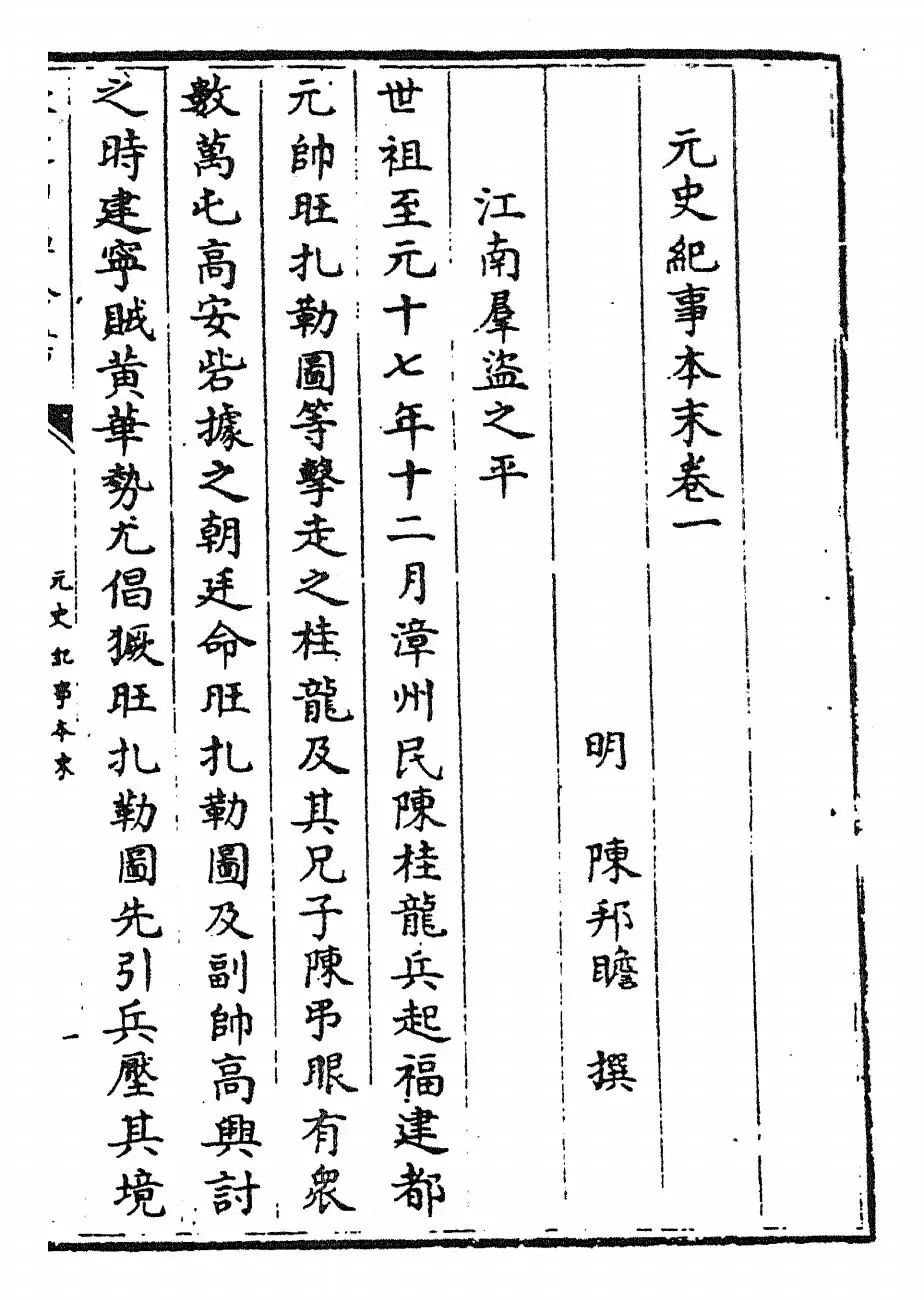 元史紀事本末卷一
明　陳邦瞻　撰
江南羣盜之平
世祖至元十七年十二月漳州民陳桂龍兵起福建都
元帥旺扎勒圖等擊走之桂龍及其兄子陳弔眼有衆
數萬屯高安砦據之朝廷命旺扎勒圖及副帥高興討
之時建寧賊黃華勢尤倡獗旺扎勒圖先引兵壓其境
元史紀事本末
一